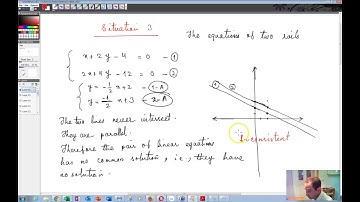 Situation 3
The equations of two rails
x + 2y - 4 = 0 - ①
2x + 4y - 12 = 0 - ②
y = -1/2 x + 2 - 1-A
y = -1/2 x + 3 - 2-A
① ②
The two lines never intersect.
They are parallel.
Inconsistent
Therefore the pair of linear equations
has no common solution, i.e., they have
no solution.